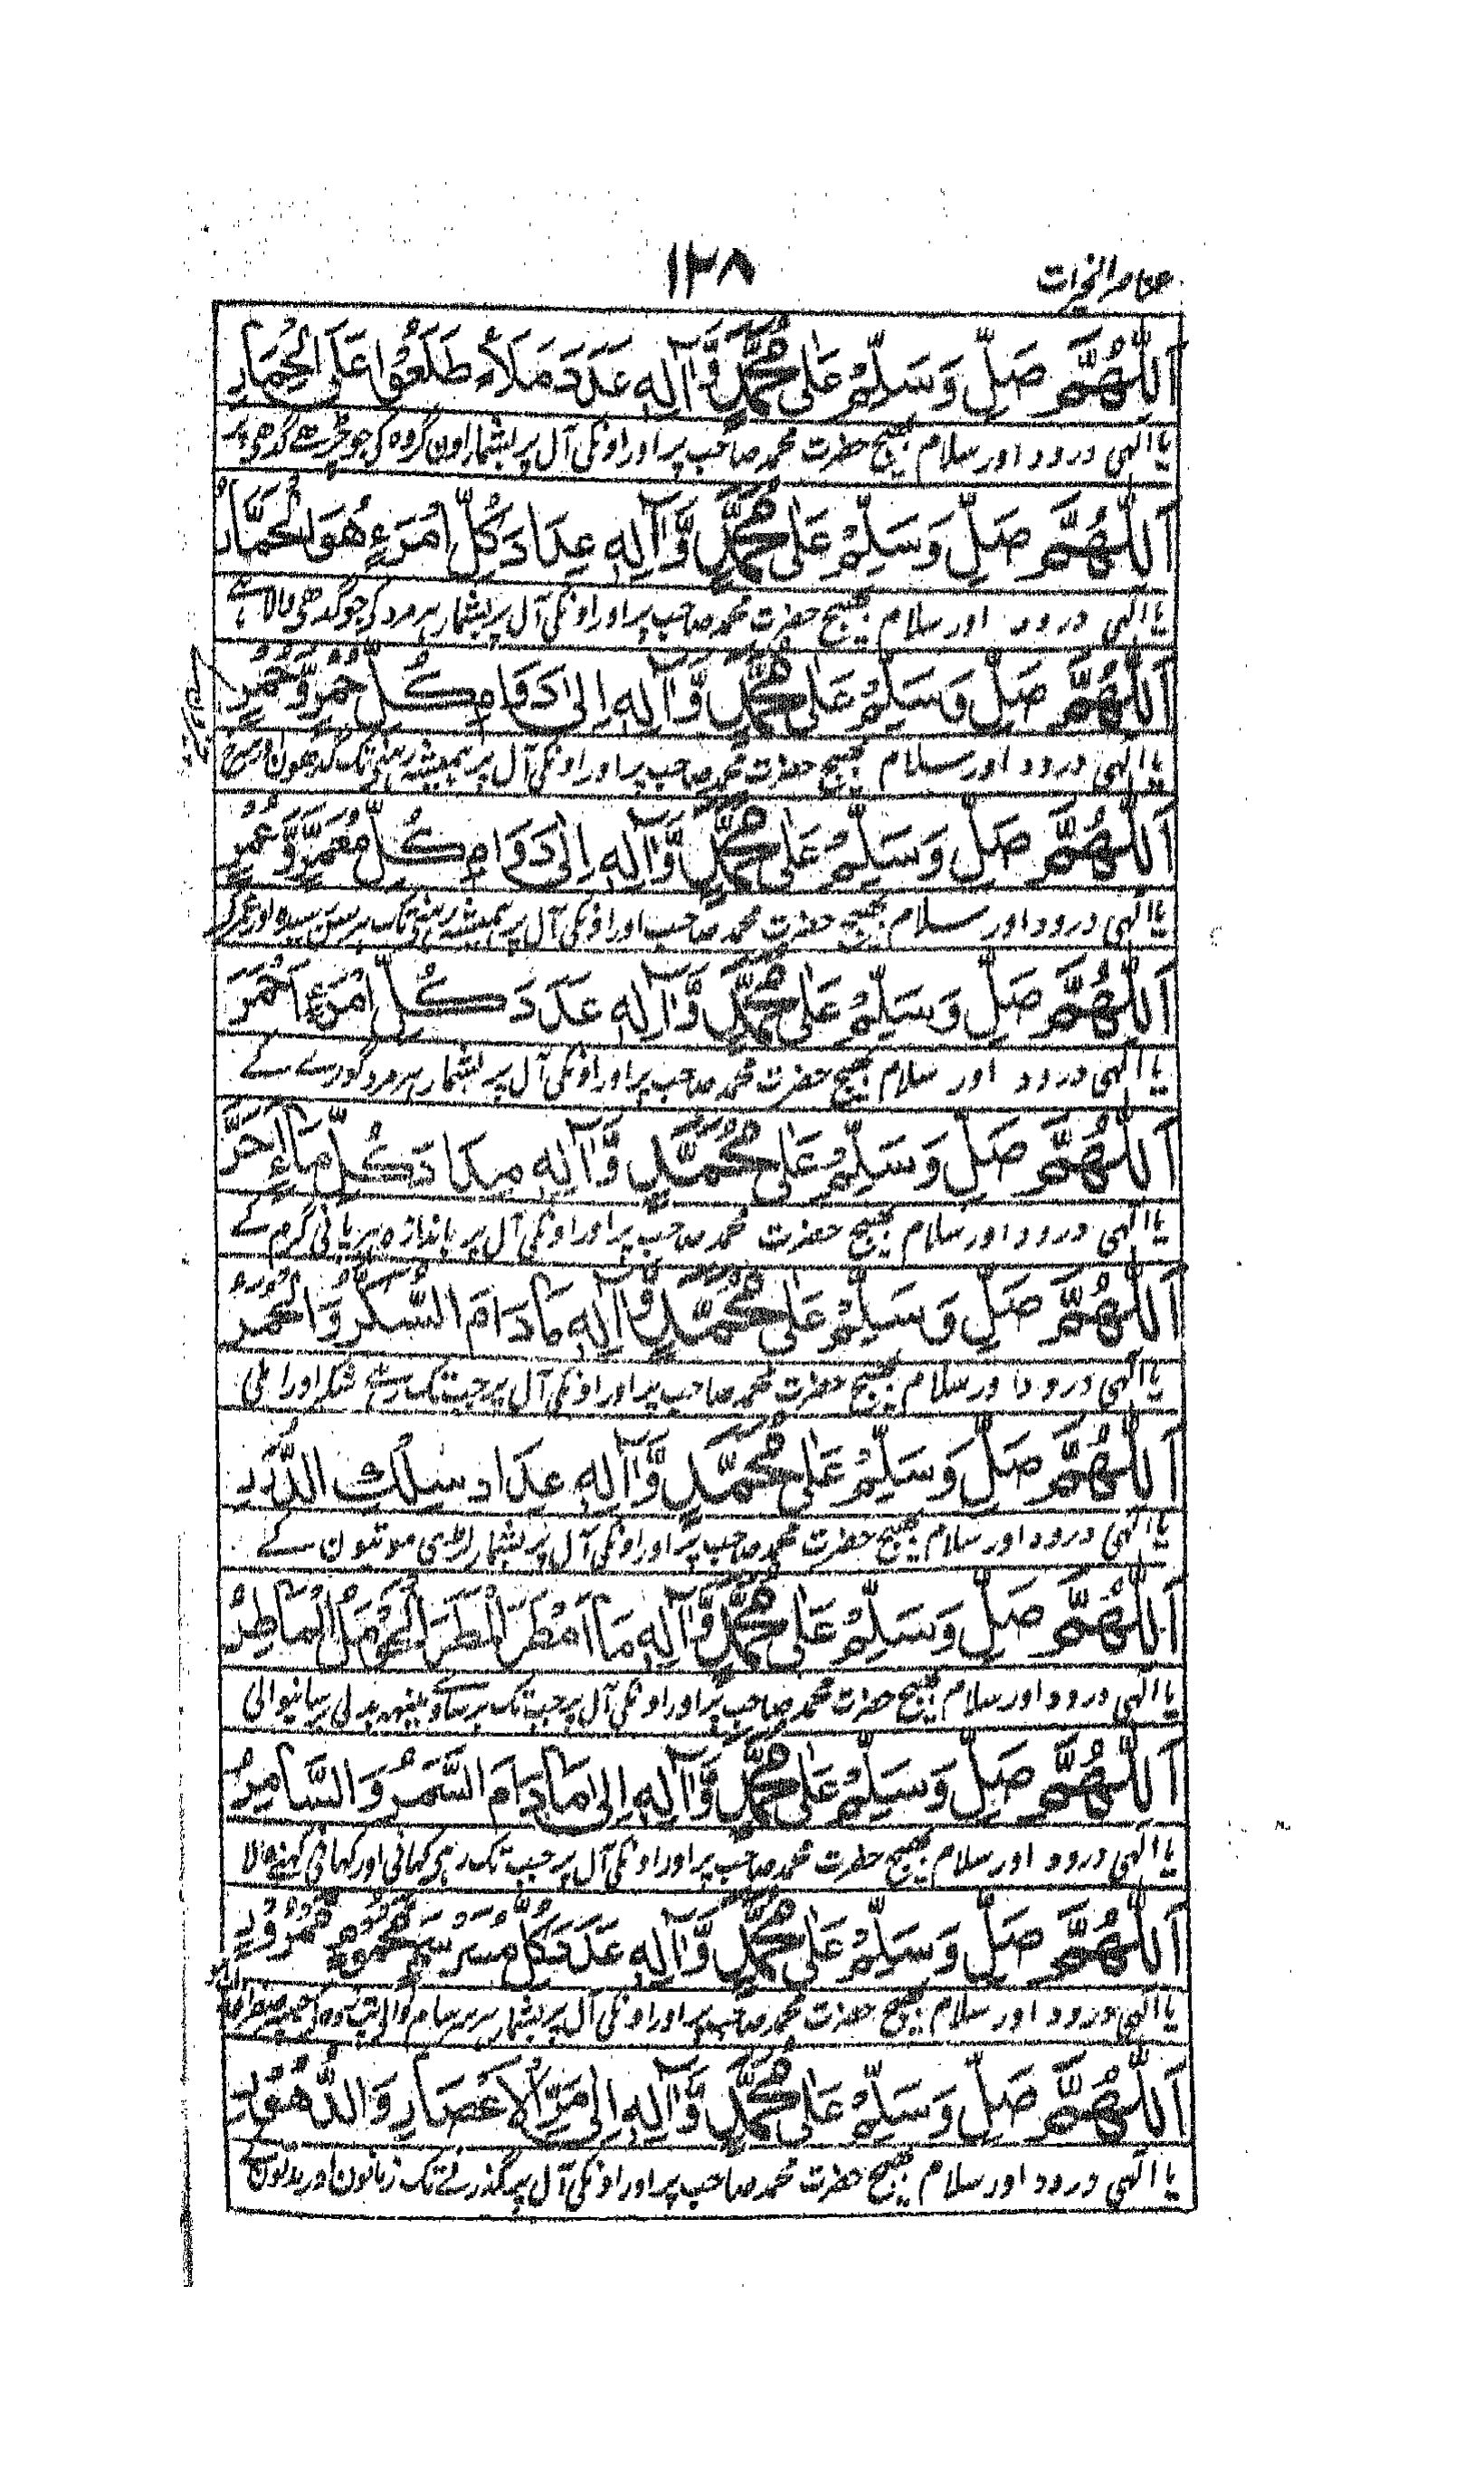 عناصر الخیرات
۱۲۸
اَللّٰهُمَّ صَلِّ وَسَلِّمْ عَلٰی مُحَمَّدٍ وَّاٰلِهٖ عَدَدَ مَلَأٍ طَلَعُوْا عَلَی الْحِمَارِ
یا الٰہی درود اور سلام بھیج حضرت محمد صاحب پر اور اونکی آل پر بشمار اون گروہ کی جو چڑھے گدھی پر
اَللّٰهُمَّ صَلِّ وَسَلِّمْ عَلٰی مُحَمَّدٍ وَّاٰلِهٖ عِدَادَ كُلِّ امْرَءٍ هُوَ الْحَمَّارُ
یا الٰہی درود اور سلام بھیج حضرت محمد صاحب پر اور اونکی آل پر بشمار ہر مرد کی جو گدھی والا ہے
اَللّٰهُمَّ صَلِّ وَسَلِّمْ عَلٰی مُحَمَّدٍ وَّاٰلِهٖ اِلٰی دَوَامِ كُلِّ حُمُرٍ وَّحُمْرٍ
یا الٰہی درود اور سلام بھیج حضرت محمد صاحب پر اور اونکی آل پر ہمیشہ رہنی تک گدھون اور
اَللّٰهُمَّ صَلِّ وَسَلِّمْ عَلٰی مُحَمَّدٍ وَّاٰلِهٖ اِلٰی دَوَامِ كُلِّ مُعَمَّرٍ وَّعُمُرٍ
یا الٰہی درود اور سلام بھیج حضرت محمد صاحب اور اونکی آل پر ہمیشہ رہنی تک ہر سن رسیدہ اور عمر کے
اَللّٰهُمَّ صَلِّ وَسَلِّمْ عَلٰی مُحَمَّدٍ وَّاٰلِهٖ عَدَدَ كُلِّ امْرَءٍ اَحْمَرَ
یا الٰہی درود اور سلام بھیج حضرت محمد صاحب پر اور اونکی آل پر بشمار ہر مرد گورے کے
اَللّٰهُمَّ صَلِّ وَسَلِّمْ عَلٰی مُحَمَّدٍ وَّاٰلِهٖ مِكَادَ كُلِّ مَاءٍ اَحَرَّ
یا الٰہی درود اور سلام بھیج حضرت محمد صاحب پر اور اونکی آل پر باندازہ ہر پانی گرم کے
اَللّٰهُمَّ صَلِّ وَسَلِّمْ عَلٰی مُحَمَّدٍ وَّاٰلِهٖ مَادَامَ السُّكَّرُ وَالْحُمَرُ
یا الٰہی درود اور سلام بھیج حضرت محمد صاحب پر اور اونکی آل پر جب تک رہے شکر اور املی
اَللّٰهُمَّ صَلِّ وَسَلِّمْ عَلٰی مُحَمَّدٍ وَّاٰلِهٖ عِدَادَ سِلْكِ الدُّرَرِ
یا الٰہی درود اور سلام بھیج حضرت محمد صاحب پر اور اونکی آل پر بشمار لڑی موتیون کے
اَللّٰهُمَّ صَلِّ وَسَلِّمْ عَلٰی مُحَمَّدٍ وَّاٰلِهٖ مَا اَمْطَرَ الْمَطَرَ الْحَوْمَلُ الْمَاطِرُ
یا الٰہی درود اور سلام بھیج حضرت محمد صاحب پر اور اونکی آل پر جب تک برساوے مینہہ بدلی برسانیوالی
اَللّٰهُمَّ صَلِّ وَسَلِّمْ عَلٰی مُحَمَّدٍ وَّاٰلِهٖ اِلٰی مَادَامَ السَّمَرُ وَالسَّامِرُ
یا الٰہی درود اور سلام بھیج حضرت محمد صاحب پر اور اونکی آل پر جب تک رہی کہانی اور کہانی کہنے والا
اَللّٰهُمَّ صَلِّ وَسَلِّمْ عَلٰی مُحَمَّدٍ وَّاٰلِهٖ عَدَدَ كُلِّ مُسَرْسَمٍ مَحْمُوْمٍ
یا الٰہی درود اور سلام بھیج حضرت محمد صاحب پر اور اونکی آل پر بشمار ہر سرسام والی تپ زدہ کی
اَللّٰهُمَّ صَلِّ وَسَلِّمْ عَلٰی مُحَمَّدٍ وَّاٰلِهٖ اِلٰی مَرِّ الْاَعْصَارِ وَالدُّهُوْرِ
یا الٰہی درود اور سلام بھیج حضرت محمد صاحب پر اور اونکی آل پر گذرنے تک زمانون اور